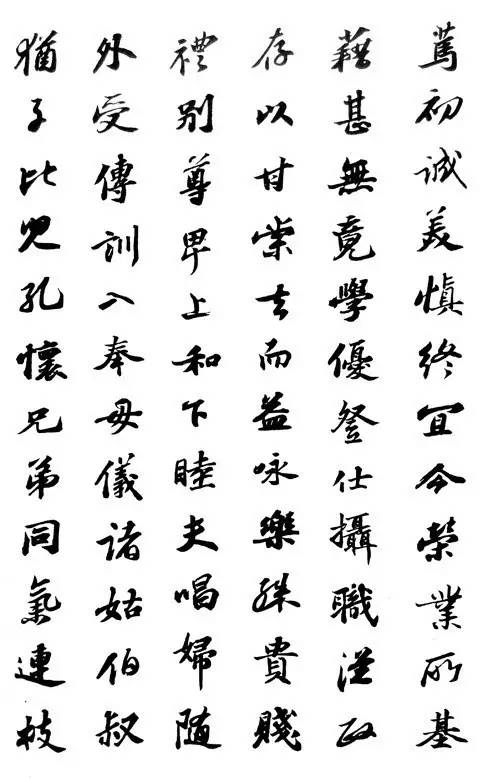 篤初誠美慎終宜令榮業所基
藉甚無竟學優登仕攝職從政
存以甘棠去而益咏樂殊貴賤
禮别尊卑上和下睦夫唱婦随
外受傅訓入奉母儀諸姑伯叔
猶子比兒孔懷兄弟同氣連枝